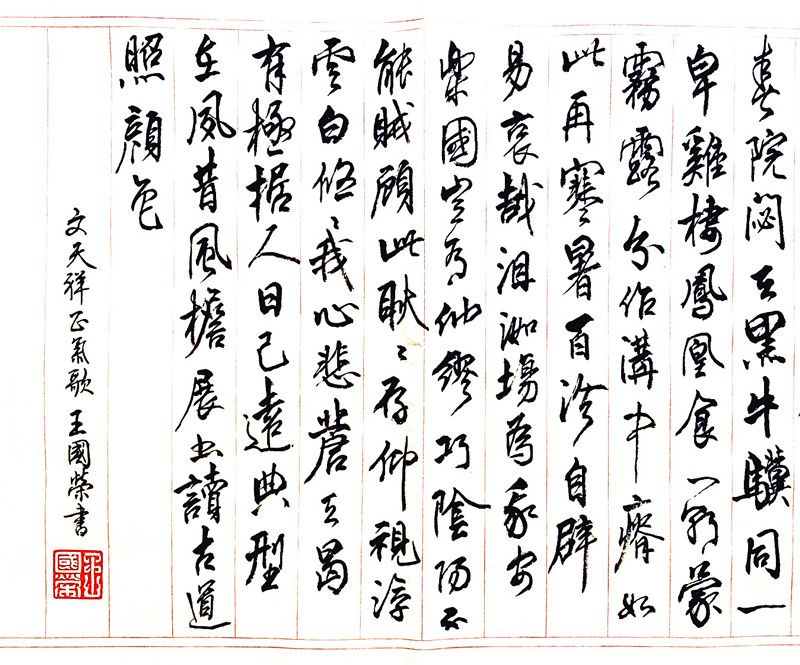 春院閟天黑牛驥同一
皁雞棲鳳凰食一朝蒙
霧露分作溝中瘠如
此再寒暑百沴自辟
易哀哉沮洳場為我安
樂國豈有他繆巧陰陽不
能賊顧此耿々存仰視浮
雲白悠々我心悲蒼天曷
有極哲人日已遠典型
在夙昔風檐展書讀古道
照顏色
文天祥正氣歌 王國榮書
國榮